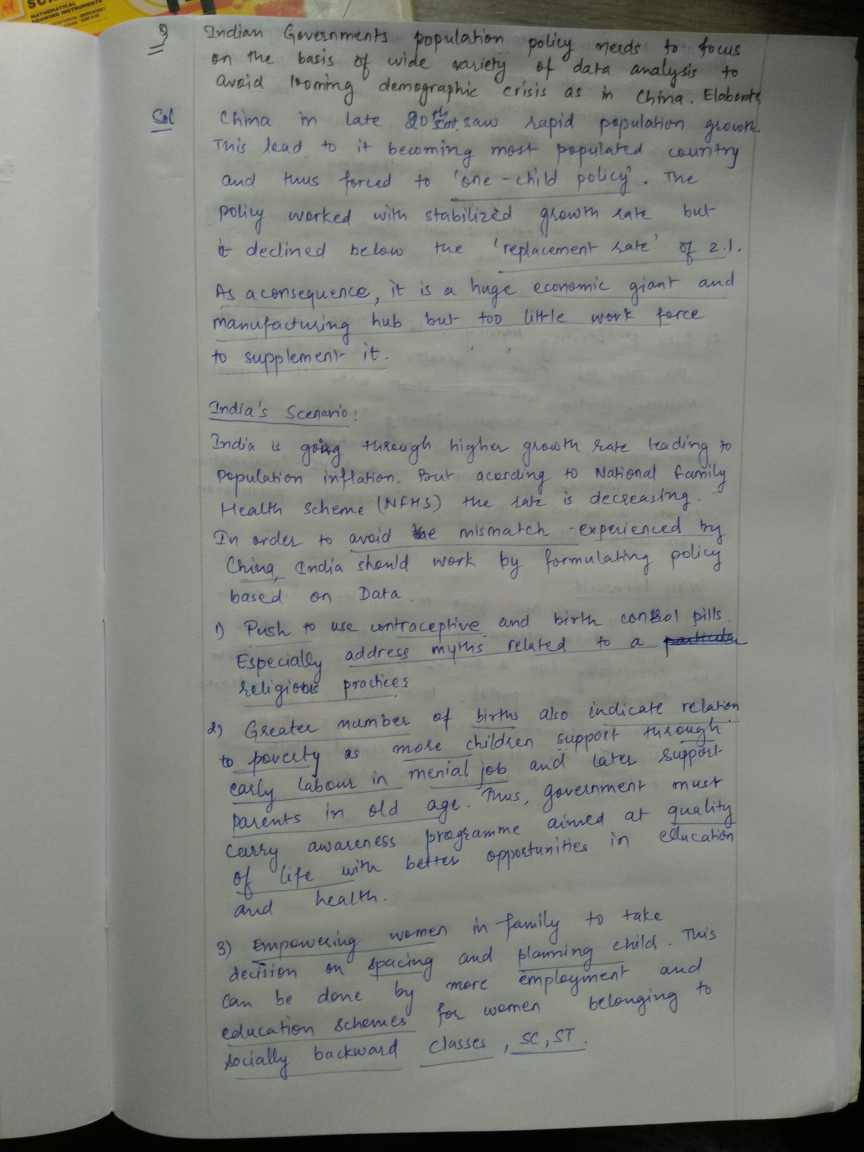 SC
MATHEMATICAL DRAWING INSTRUMENTS
Q Indian Governments population policy needs to focus
on the basis of wide variety of data analysis to
avoid looming demographic crisis as in China. Elaborate
Sol China in late 20th saw rapid population growth.
This lead to it becoming most populated country
and thus forced to 'one-child policy'. The
policy worked with stabilized growth rate but
it declined below the 'replacement rate' of 2.1.
As a consequence, it is a huge economic giant and
manufacturing hub but too little work force
to supplement it.
India's Scenario:
India is going through higher growth rate leading to
population inflation. But acording to National family
Health Scheme (NFHS) the rate is decreasing.
In order to avoid the mismatch experienced by
China, India should work by formulating policy
based on Data.
1) Push to use contraceptive and birth control pills.
Especially address myths related to a
religious practices
2) Greater number of births also indicate relation
to poverty as more children support through
early labour in menial job and later support
parents in old age. Thus, government must
carry awareness programme aimed at quality
of life with better opportunities in education
and health.
3) Empowering women in family to take
decision on spacing and planning child. This
can be done by more employment and
education schemes for women belonging to
socially backward classes, SC, ST.